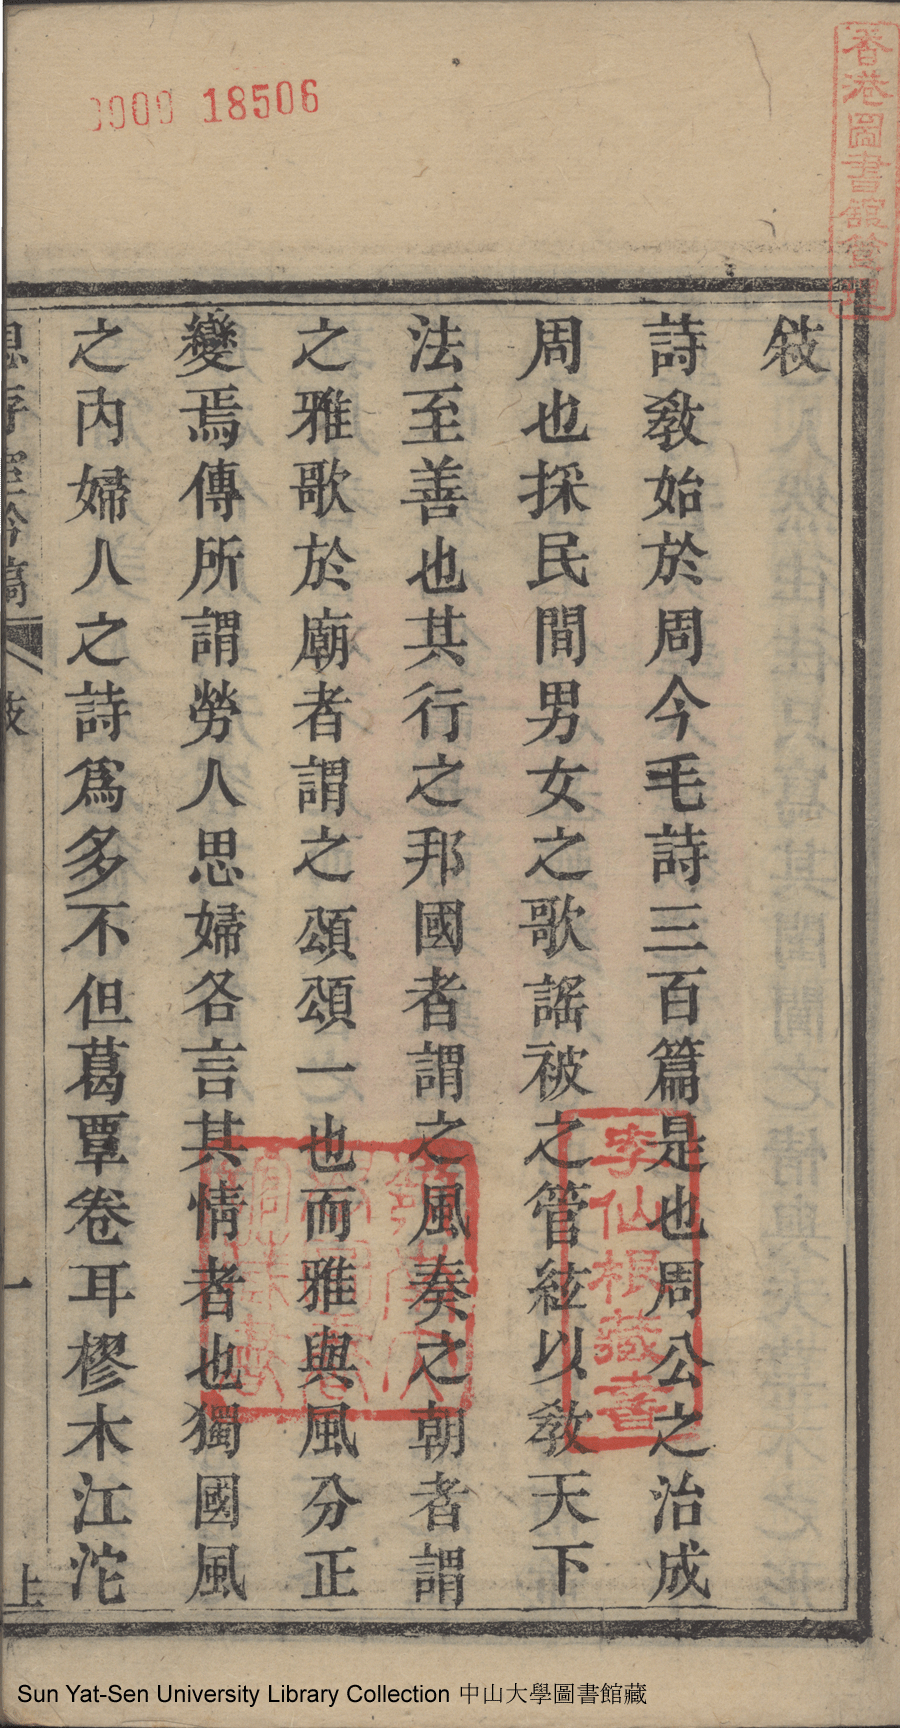 0000 18506
香港圖書館管理
敍
詩教始於周今毛詩三百篇是也周公之治成
周也採民間男女之歌謠被之管絃以教天下
法至善也其行之邦國者謂之風奏之朝者謂
之雅歌於廟者謂之頌頌一也而雅與風分正
變焉傳所謂勞人思婦各言其情者也獨國風
之內婦人之詩爲多不但葛覃卷耳樛木江沱
敍
一
上
李仙根藏書
Sun Yat-Sen University Library Collection 中山大學圖書館藏